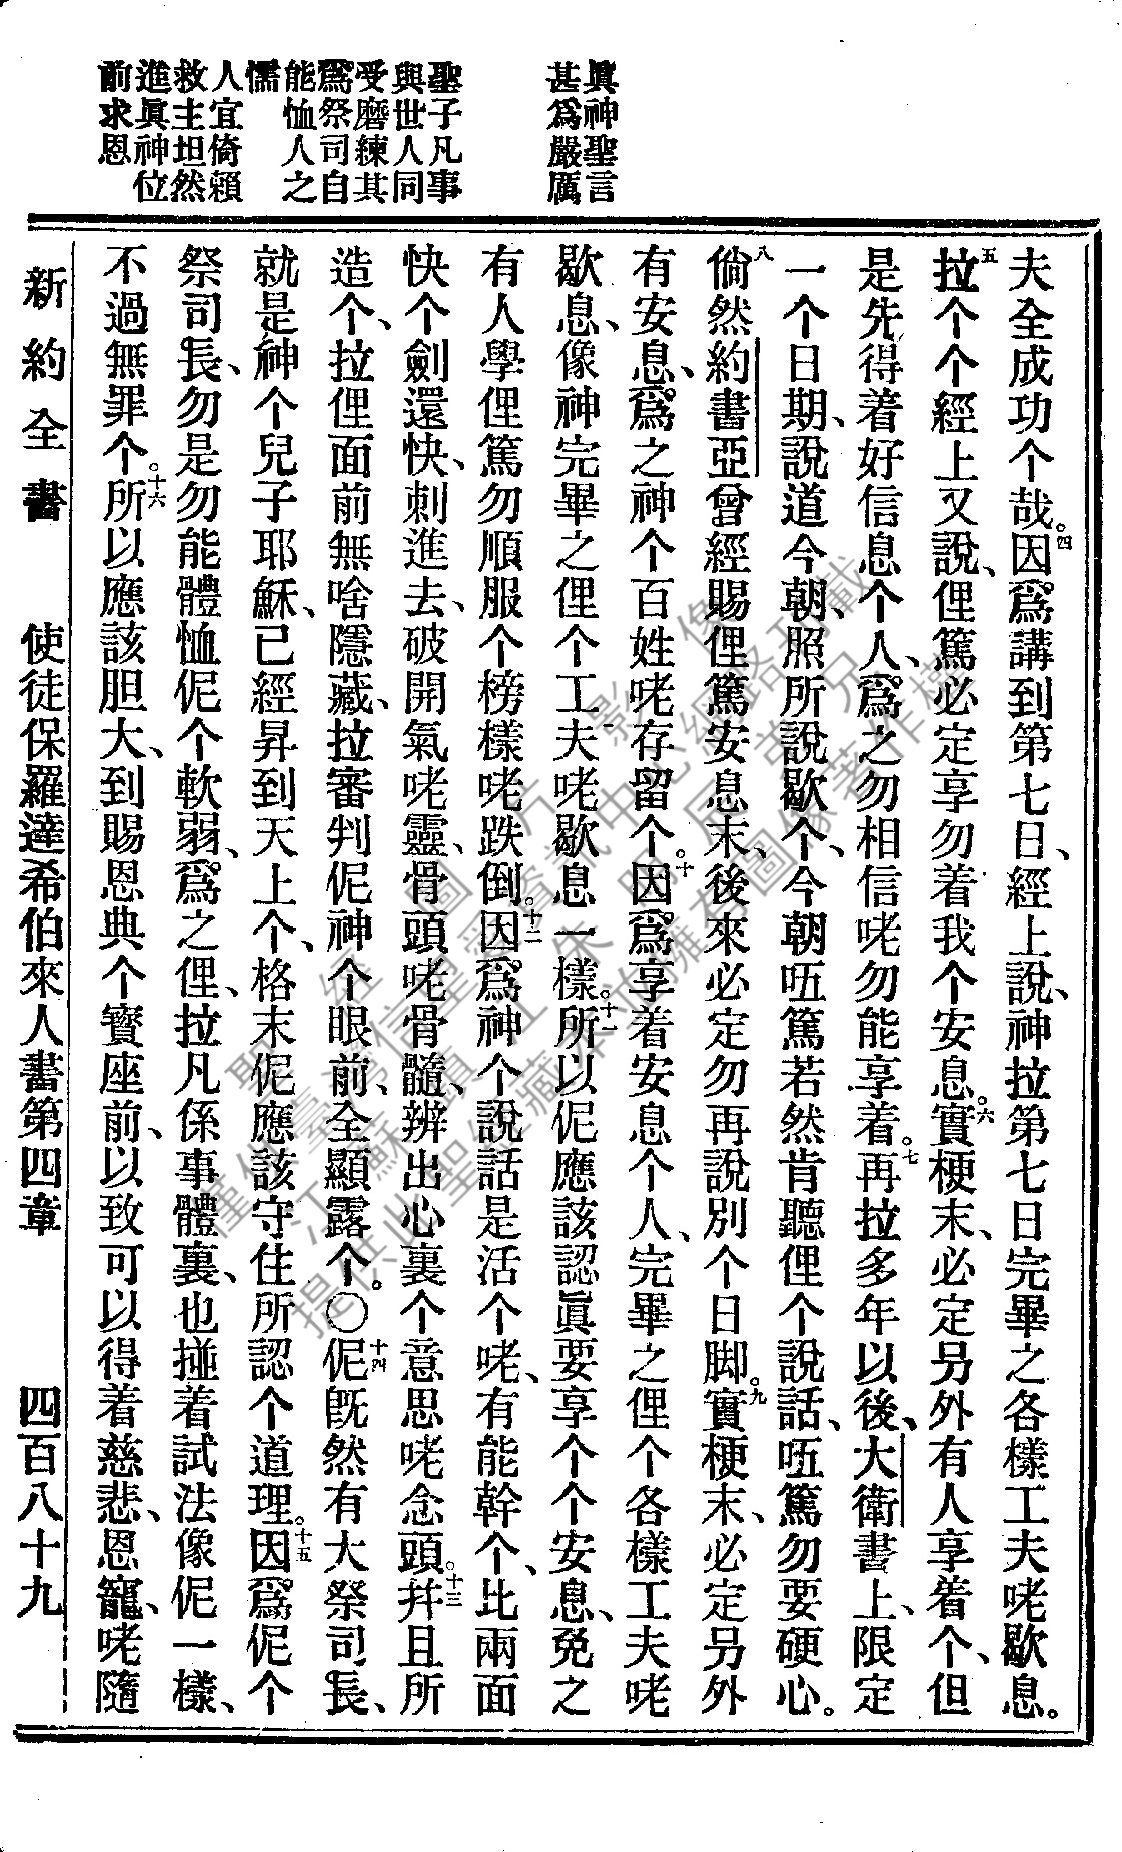 眞神聖言
甚爲嚴厲
聖子凡事
與世人同
受磨練其
爲祭司自
能恤人之
懦
人宜倚賴
救主坦然
進眞神位
前求恩
夫全成功个哉。四因爲講到第七日、經上說、神拉第七日完畢之各樣工夫咾歇息。
五拉个个經上又說、俚篤必定享勿着我个安息。六實梗末、必定另外有人享着个、但
是先得着好信息个人、爲之勿相信咾勿能享着。七再拉多年以後、大衛書上、限定
一个日期、說道今朝、照所說歇个、今朝㕶篤若然肯聽俚个說話、㕶篤勿要硬心。
八倘然約書亞曾經賜俚篤安息末、後來必定勿再說別个日脚。九實梗末、必定另外
有安息、爲之神个百姓咾存留个。十因爲享着安息个人、完畢之俚个各樣工夫咾
歇息、像神完畢之俚个工夫咾歇息一樣。十一所以伲應該認眞要享个个安息、免之
有人學俚篤勿順服个榜樣咾跌倒。十二因爲神个說話是活个咾、有能幹个、比兩面
快个劍還快、刺進去、破開氣咾靈、骨頭咾骨髓、辨出心裏个意思咾念頭。十三幷且所
造个、拉俚面前無啥隱藏、拉審判伲神个眼前、全顯露个。〇十四伲旣然有大祭司長、
就是神个兒子耶穌、已經昇到天上个、格末伲應該守住所認个道理。十五因爲伲个
祭司長、勿是勿能體恤伲个軟弱、爲之俚、拉凡係事體裏、也掽着試法像伲一樣、
不過無罪个。十六所以應該胆大、到賜恩典个寳座前、以致可以得着慈悲、恩寵、咾隨
新約全書　使徒保羅達希伯來人書第四章　四百八十九